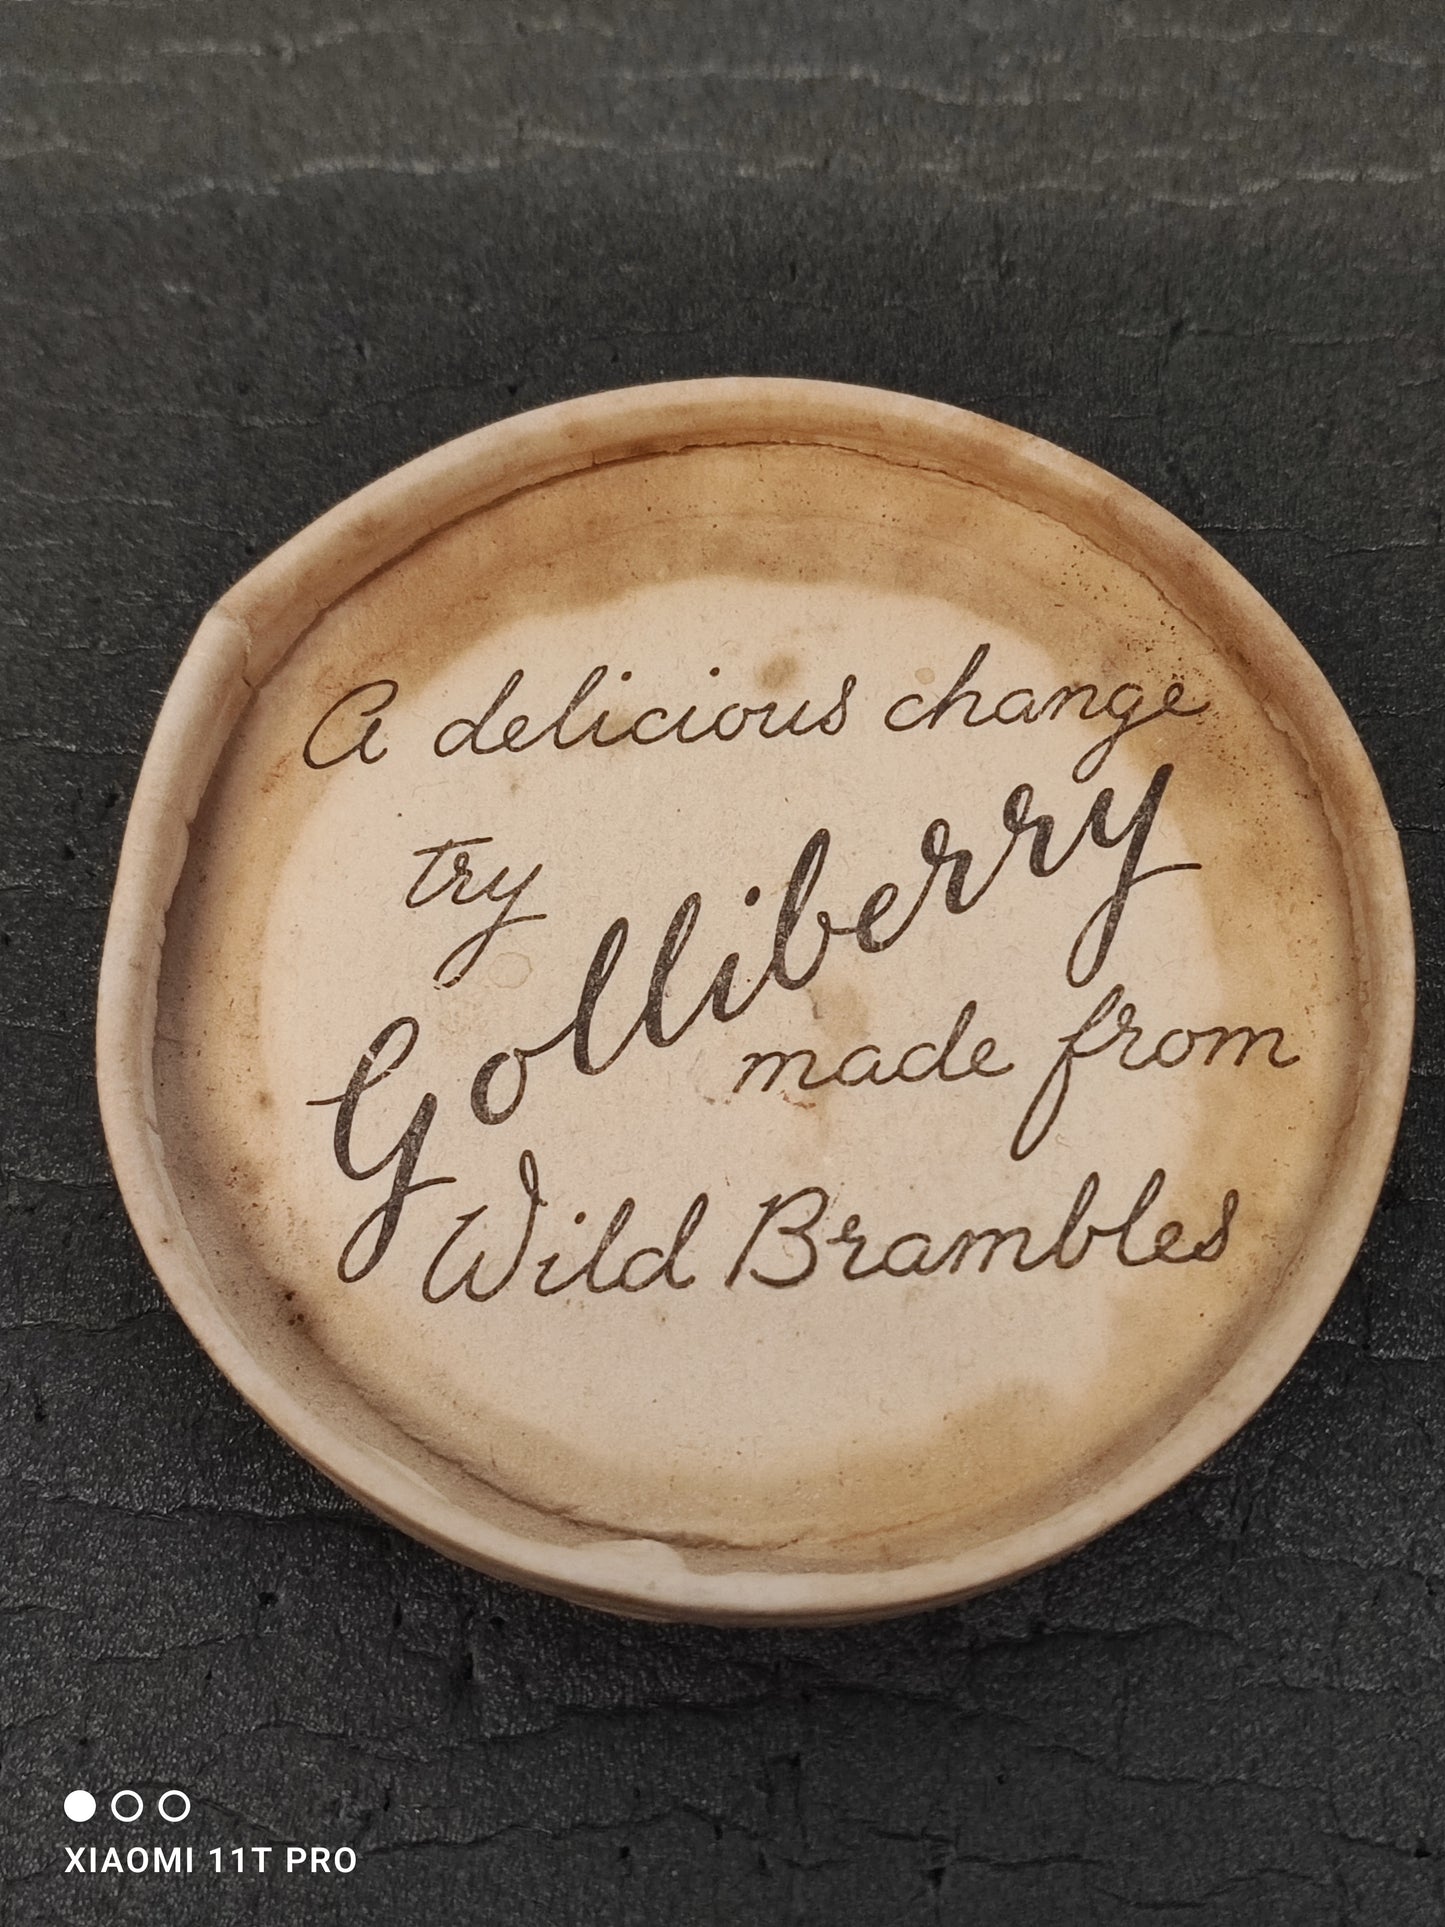 A delicious change
try
Golliberry
made from
Wild Brambles
XIAOMI 11T PRO